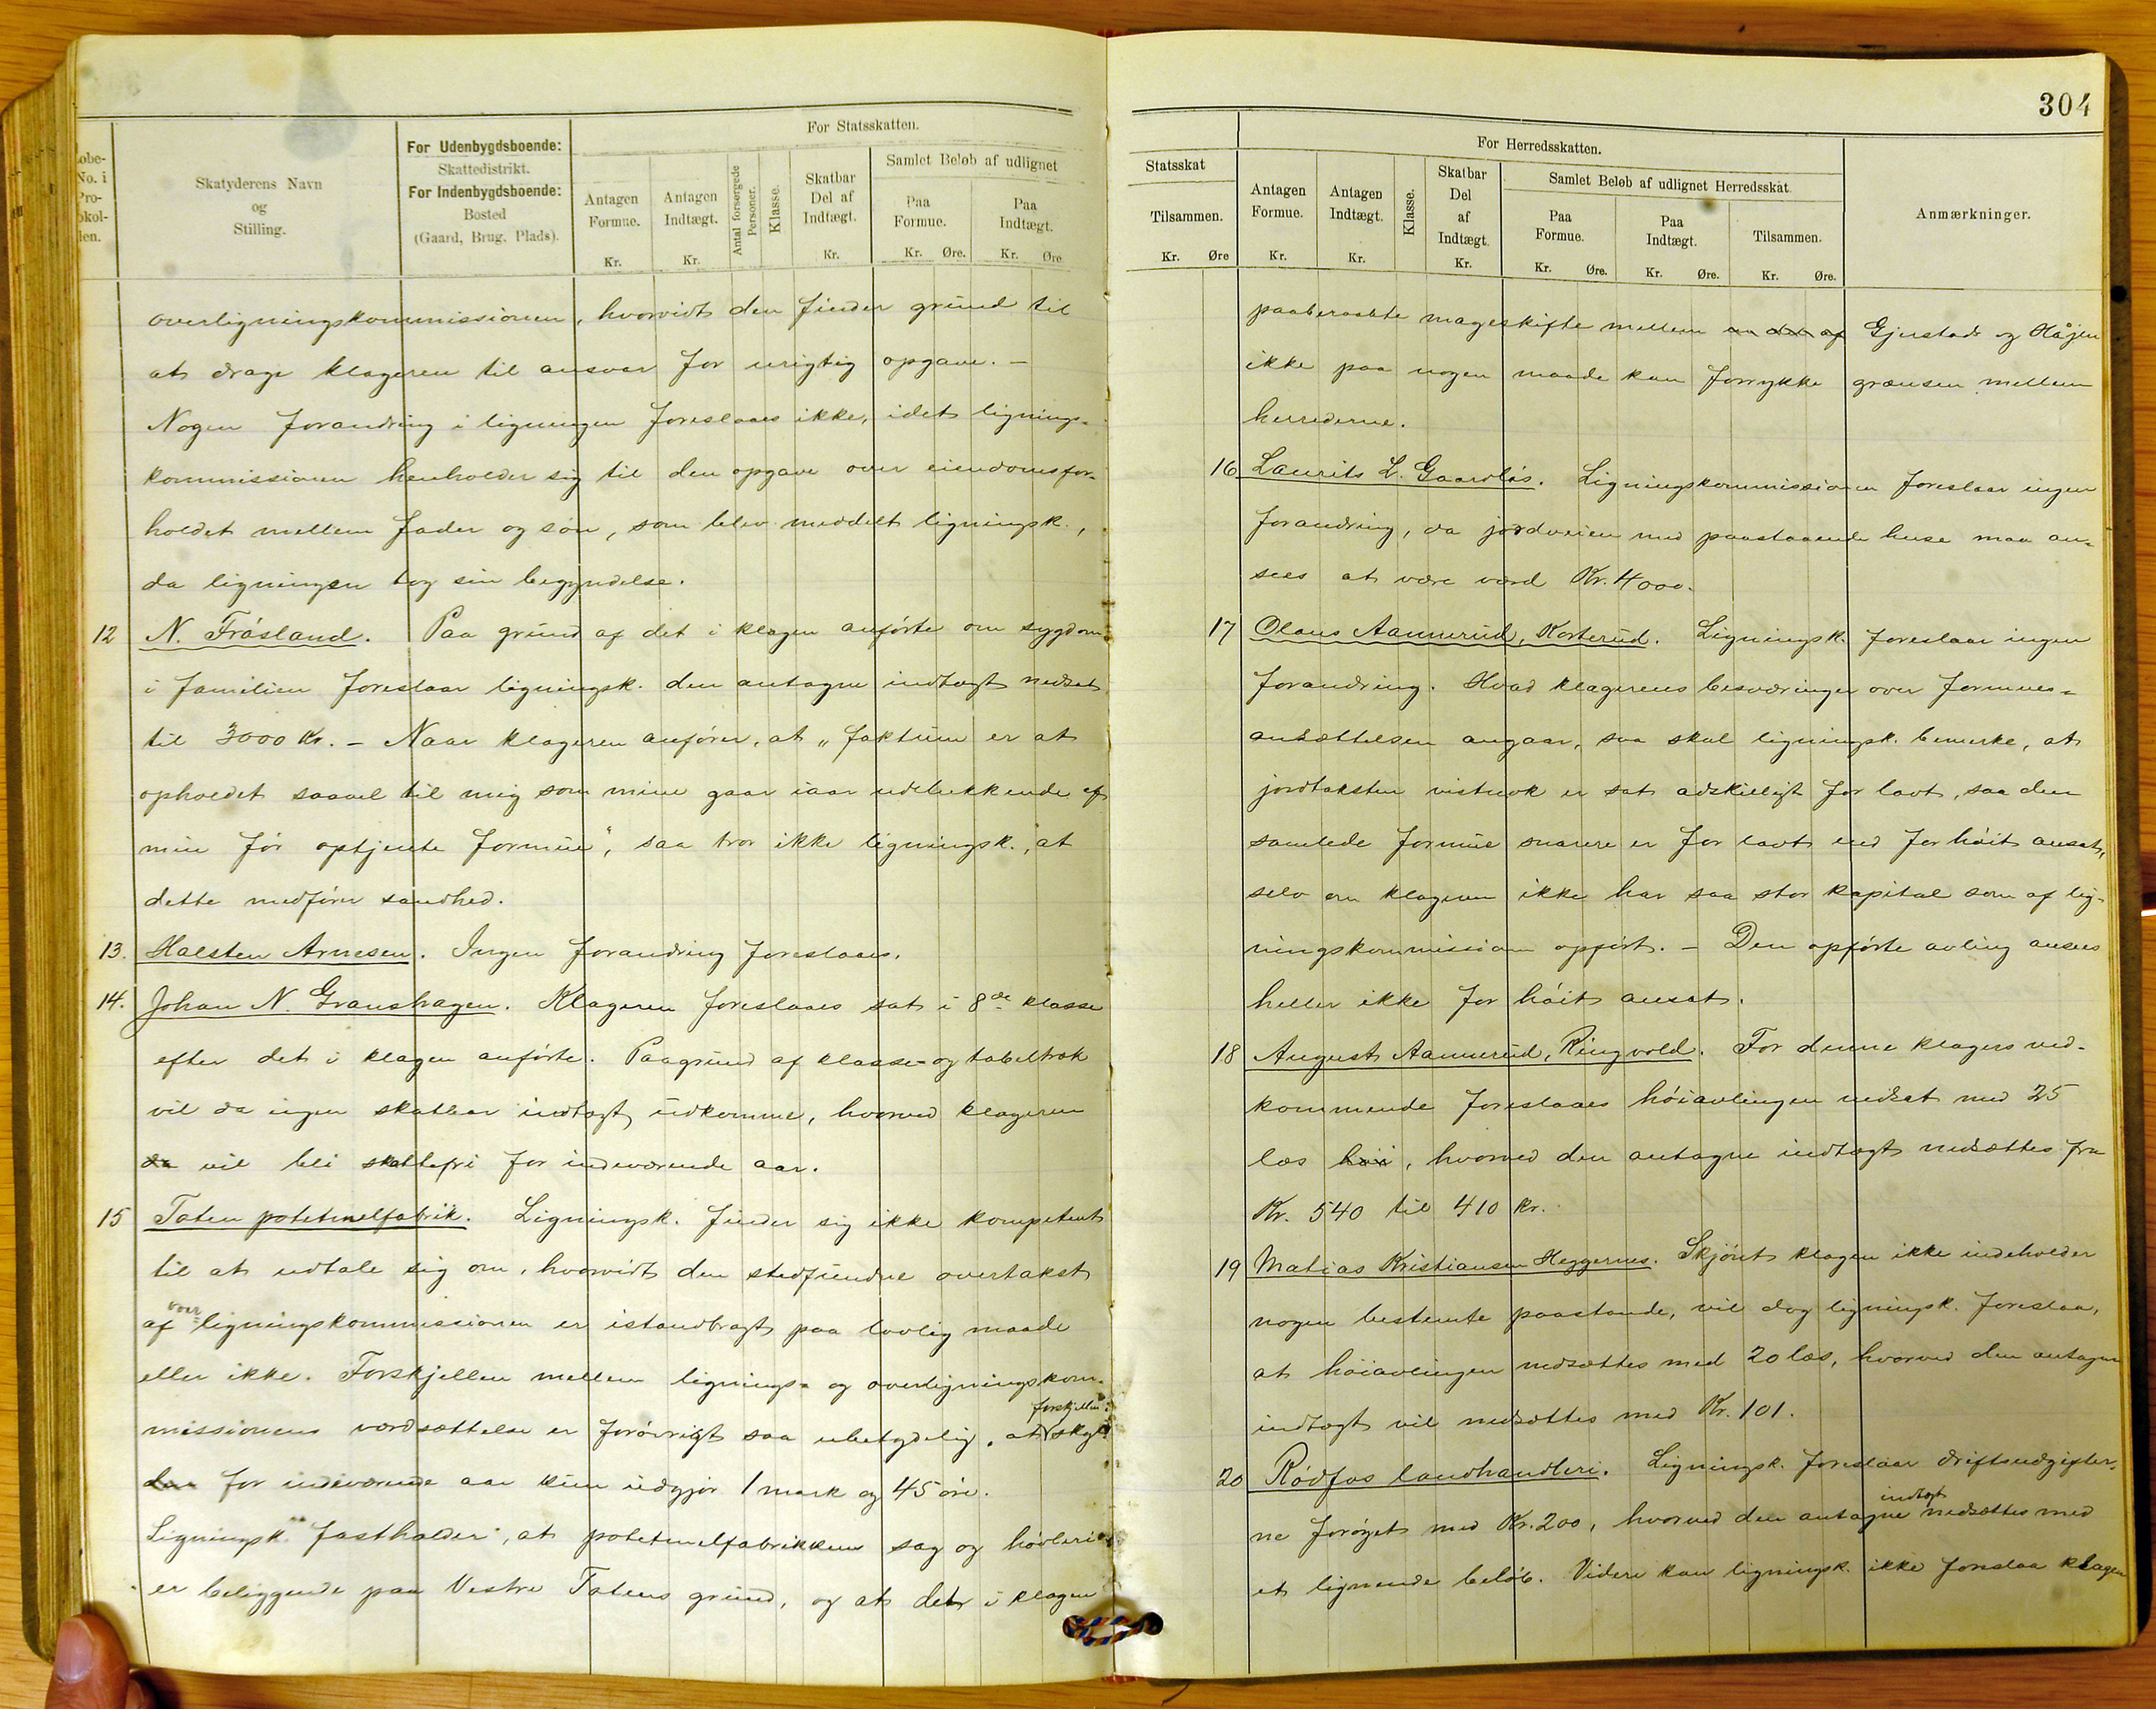 Løbe-
No. i
Pro-
tokol-
len.
Skatyderens Navn
og
Stilling.
For Udenbygdsboende:
Skattedistrikt.
For Indenbygdsboende:
Bosted
(Gaard, Brug, Plads).
For Statsskatten.
Antagen
Formue.
Kr.
Antagen
Indtægt.
Kr.
Antal forsørgede
Personer.
Klasse.
Skatbar
Del af
Indtægt.
Kr.
Samlet Beløb af udlignet
Paa
Formue.
Kr. Øre.
Paa
Indtægt.
Kr. Øre
overligningskommissionen, hvorvidt den finder grund til
at drage klageren til ansvar for urigtig opgave. –
Nogen forandring i ligningen foreslaaes ikke, idet lignings-
kommissionen henholder sig til den opgave over eiendomsfor-
holdet mellem fader og søn, som blev meddelt ligningsk.,
da ligningen tog sin begyndelse.
12 N. Fråsland. Paa grund af det i klagen anførte om sygdom
i familien foreslaar ligningsk. den antagne indtægt nedsat
til 3000 Kr. – Naar klageren anfører, at „faktum er at
opholdet saavel til mig som mine gaar iaar udelukkende af
min før optjente formue“, saa tror ikke ligningsk., at
dette medfører sandhed.
13. Halsten Arnesen. Ingen forandring foreslaaes.
14. Johan N. Granshagen. Klageren foreslaaes sat i 8de klasse
efter det i klagen anførte. Paagrund af klasse- og tabeltræk
vil da ingen skatbar indtægt udkomme, hvorved klageren
da vil bli skattefri for indeværende aar.
15 Toten potetmelfabrik. Ligningsk. finder sig ikke kompetent
til at udtale sig om, hvorvidt den stedfundne overtakst
af overligningskommissionen er istandbragt paa lovlig maade
eller ikke. Forskjellen mellem lignings- og overligningskom-
missionens værdsættelse er forøvrigt saa ubetydelig, at forskjellen i skyl
den for indeværende aar kun udgjør 1 mark og 45 øre.
Ligningsk. fastholder, at potetmelfabrikken sag og høvleri
er beliggende paa Vestre Totens grund, og at det i klagen
304
Statsskat
Tilsammen.
Kr. Øre
For Herredsskatten.
Antagen
Formue.
Kr.
Antagen
Indtægt.
Kr.
Klasse.
Skatbar
Del
af
Indtægt.
Kr.
Samlet Beløb af udlignet Herredsskat.
Paa
Formue.
Kr. Øre.
Paa
Indtægt.
Kr. Øre.
Tilsammen.
Kr. Øre.
Anmærkninger.
paaberaabte mageskifte mellem en del af Gjerstad og Håjen
ikke paa nogen maade kan forrykke grænsen mellem
herrederne.
16 Laurits L. Gaardløs. Ligningskommissionen foreslaar ingen
forandring, da jordveien med paastaaende huse maa an-
sees at være værd Kr. 4000.
17 Olaus Aannerud, Korterud. Ligningsk. foreslaar ingen
forandring. Hvad klagerens besværinger over formues-
ansættelsen angaar, saa skal ligningsk. bemerke, at
jordtaksten vistnok er sat adskilligt for lavt, saa den
samlede formue snarere er for lavt end for høit ansat,
selv om klageren ikke har saa stor kapital som af lig-
ningskommissionen opført. – Den opførte avling ansees
heller ikke for høit ansat.
18 August Aannerud, Ringvold. For denne klagers ved-
kommende foreslaaes høiavlingen nedsat med 25
læs høi, hvorved den antagne indtægt nedsættes fra
Kr. 540 til 410 kr.
19 Matias Kristiansen Heggernes. Skjønt klagen ikke indeholder
nogen bestemte paastande, vil dog ligningsk. foreslaa,
at høiavlingen nedsættes med 20 læs, hvorved den antagne
indtægt vil nedsættes med Kr. 101.
20 Rødfos landhandleri. Ligningsk. foreslaar driftsudgifter-
ne forøget med Kr. 200, hvorved den antagne indtægt nedsættes med
et lignende beløb. Videre kan ligningsk. ikke foreslaa klagen